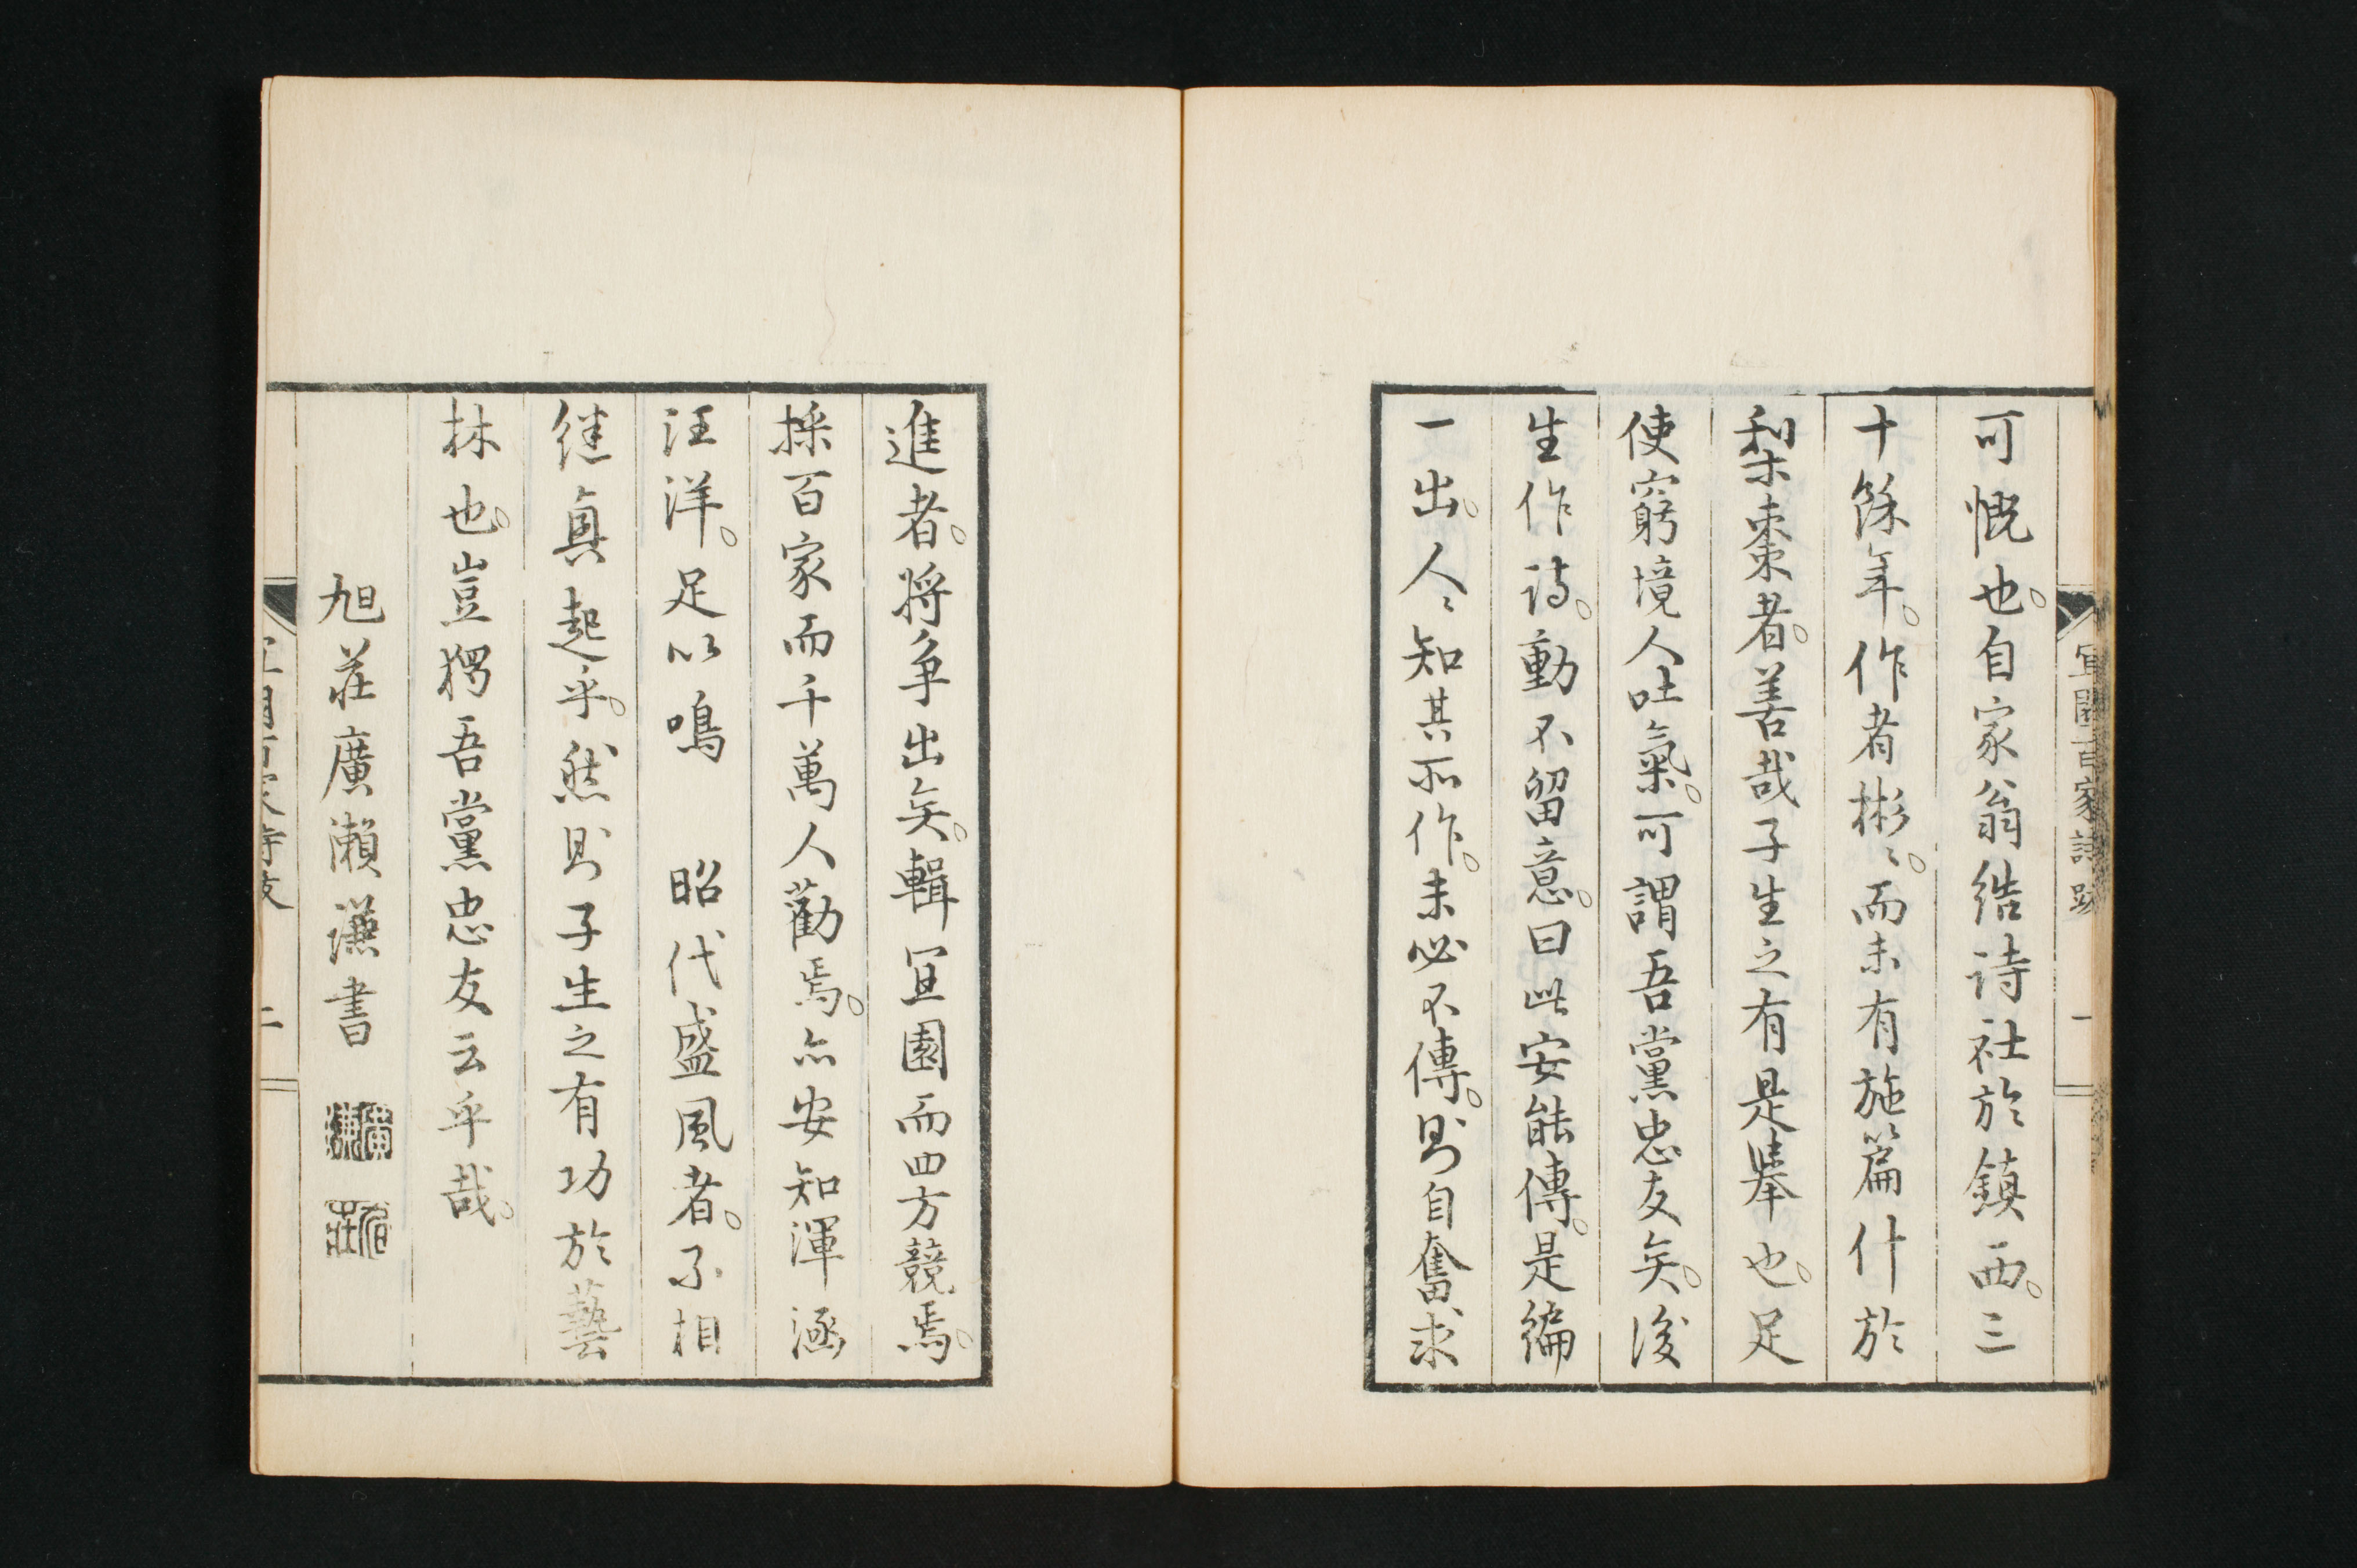 宜園百家詩跋 一
可慨也。自家翁結詩社於鎮西。三
十餘年。作者彬〻。而未有施篇什於
梨棗者。善哉子生之有是舉也。足
使窮境人吐氣。可謂吾黨忠友矣。後
生作詩。動不留意。曰此安能傳。是編
一出。人〻知其所作。未必不傳。則自奮求
進者。將争出矣。輯宜園而四方競焉。
採百家而千萬人勸焉。亦安知渾涵
汪洋。足以鳴 昭代盛風者。不相
継真起乎。然則子生之有功於藝
林也。豈猶吾黨忠友云乎哉。
旭荘廣瀬謙書
廣謙
荘
二